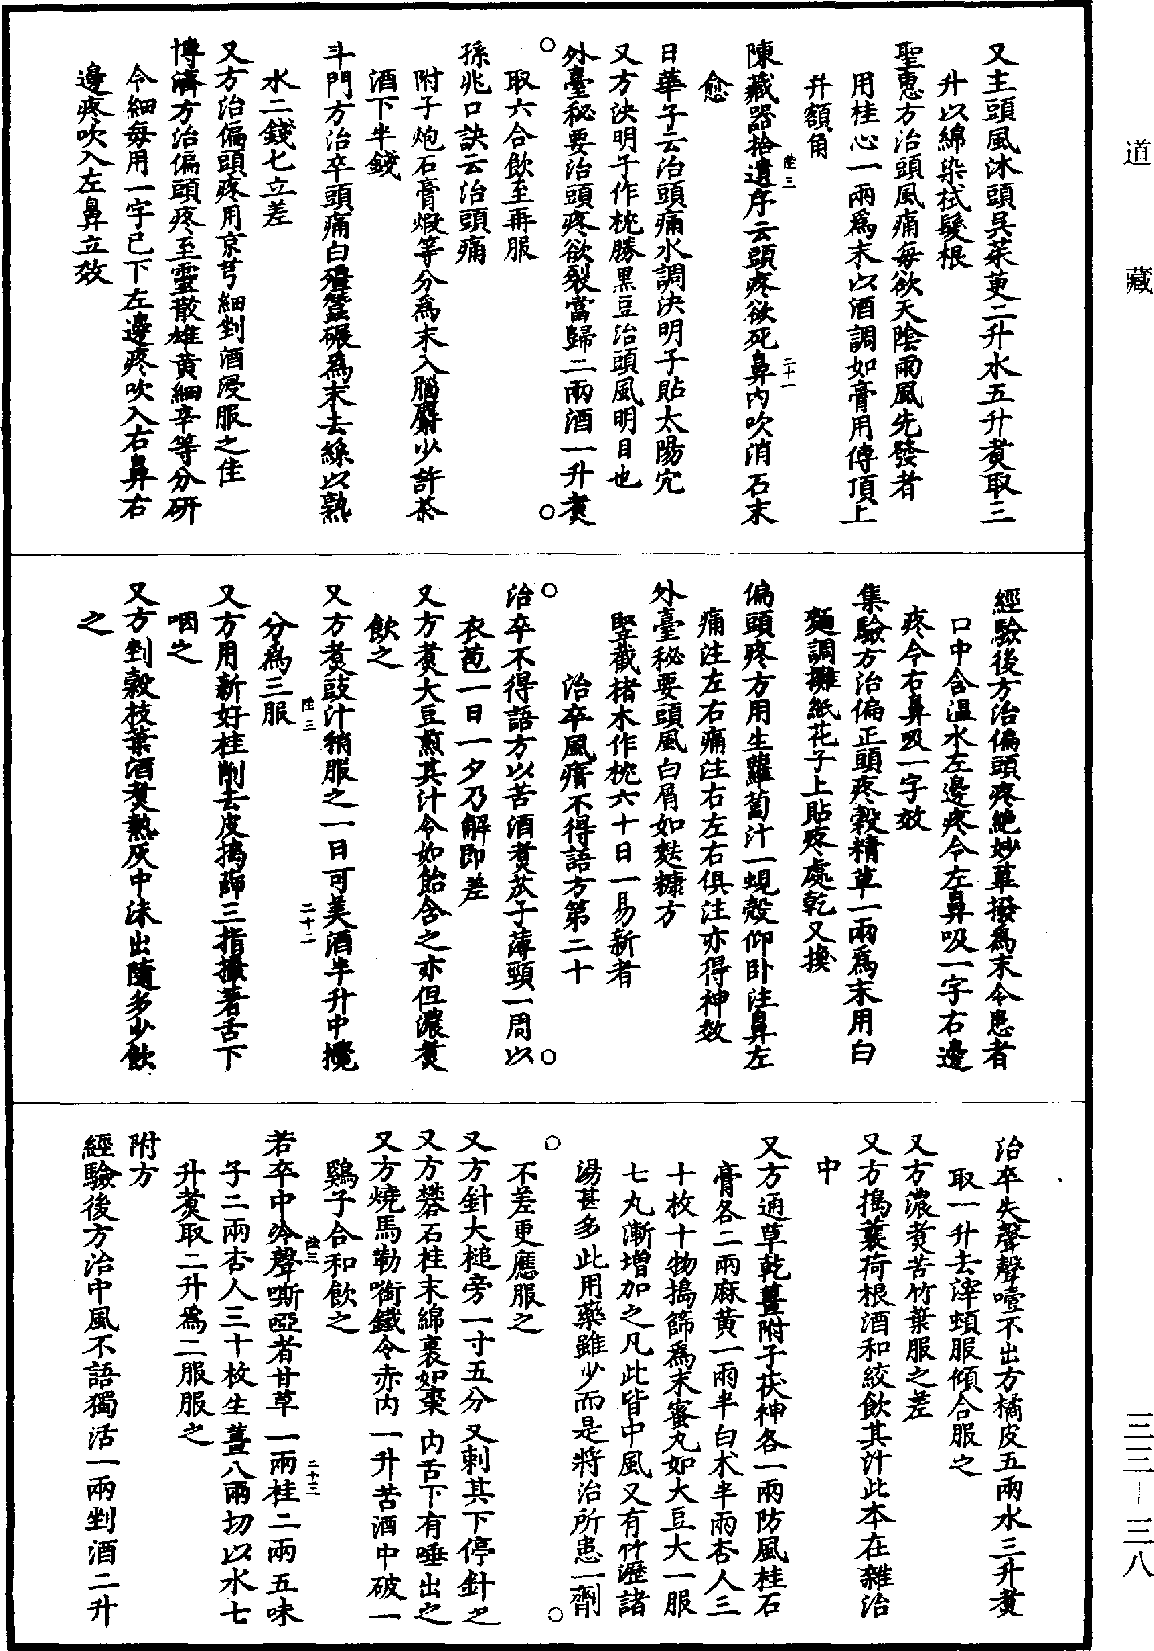 道藏
又主頭風沐頭吳茱萸二升水五升煑取三
升以綿染拭髮根
聖惠方治頭風痛每欲天陰雨風先發者
用桂心一兩爲末以酒調如膏用傅頂上
幷額角
陳藏器拾遺序云頭疼欲死鼻內吹消石末
愈
陸三
二十一
日華子云治頭痛水調決明子貼太陽穴
又方決明子作枕勝黑豆治頭風明目也
外臺秘要治頭疼欲裂當歸二兩酒一升煑
取六合飲至再服
孫兆口訣云治頭痛
附子炮石膏煅等分爲末入腦麝少許茶
酒下半錢
斗門方治卒頭痛白殭蠶碾爲末去絲以熟
水二錢匕立差
又方治偏頭疼用京芎細剉酒浸服之佳
博濟方治偏頭疼至靈散雄黃細辛等分研
令細每用一字已下左邊疼吹入右鼻右
邊疼吹入左鼻立效
經驗後方治偏頭疼絕妙蓽撥爲末令患者
口中含溫水左邊疼令左鼻吸一字右邊
疼令右鼻吸一字效
集驗方治偏正頭疼穀精草一兩爲末用白
麵調攤紙花子上貼疼處乾又換
偏頭疼方用生蘿蔔汁一蜆殼仰臥注鼻左
痛注左右痛注右左右俱注亦得神效
外臺秘要頭風白屑如麩糠方
豎截楮木作枕六十日一易新者
治卒風瘖不得語方第二十
治卒不得語方以苦酒煑苽子薄頸一周以
衣苞一日一夕乃解即差
又方煑大豆煎其汁令如飴含之亦但濃煑
飲之
又方煑豉汁稍服之一日可美酒半升中攪
分爲三服
陸三
二十二
又方用新好桂削去皮搗篩三指撮著舌下
咽之
又方剉穀枝葉酒煑熱灰中沬出隨多少飲
之
治卒失聲聲噎不出方橘皮五兩水三升煑
取一升去滓頓服傾合服之
又方濃煑苦竹葉服之差
又方搗蘘荷根酒和絞飲其汁此本在雜治
中
又方通草乾薑附子茯神各一兩防風桂石
膏各二兩麻黃一兩半白朮半兩杏人三
十枚十物搗篩爲末蜜丸如大豆大一服
七丸漸增加之凡此皆中風又有竹瀝諸
湯甚多此用藥雖少而是將治所患一劑
不差更應服之
又方針大槌旁一寸五分又刺其下停針之
又方礬石桂末綿裹如棗內舌下有唾出之
又方燒馬勒銜鐵令赤內一升苦酒中破一
鷄子合和飲之
若卒中冷聲嘶啞者甘草一兩桂二兩五味
陸三
二十三
子二兩杏人三十枚生薑八兩切以水七
升煑取二升爲二服服之
附方
經驗後方治中風不語獨活一兩剉酒二升
三三—三八